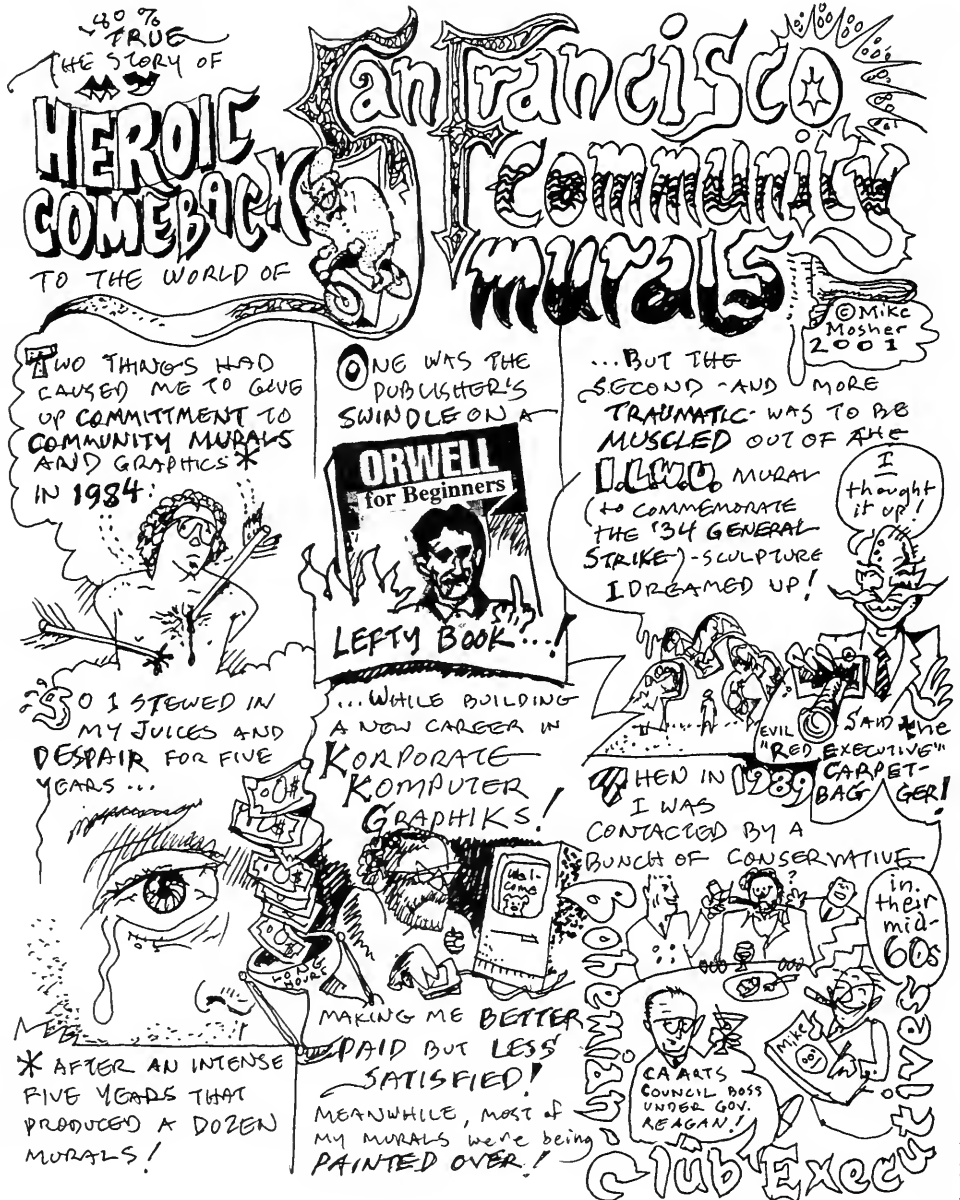 80%
TRUE
THE STORY OF
MY
HEROIC
COMEBACK
TO THE WORLD OF
San Francisco
community
murals
©Mike
Mosher
2001
TWO THINGS HAD
CAUSED ME TO GIVE
UP COMMITTMENT TO
COMMUNITY MURALS
AND GRAPHICS*
IN 1984:
ONE WAS THE
PUBLISHER'S
SWINDLE ON A
ORWELL
for Beginners
LEFTY BOOK...!
...BUT THE
SECOND -AND MORE
TRAUMATIC- WAS TO BE
MUSCLED OUT OF THE
I.L.W.U. MURAL
(to COMMEMORATE
THE '34 GENERAL
STRIKE)-SCULPTURE
I DREAMED UP!
I
thought
it up!
EVIL
SAID the
"RED EXECUTIVE"
CARPET-
BAGGER!
SO I STEWED IN
MY JUICES AND
DESPAIR FOR FIVE
YEARS...
LONG
HOURS
...WHILE BUILDING
A NEW CAREER IN
KORPORATE
KOMPUTER
GRAPHIKS!
Wel-
come
MAKING ME BETTER
PAID BUT LESS
SATISFIED!
MEANWHILE, MOST of
MY MURALS were being
PAINTED OVER!
THEN IN 1989
I WAS
CONTACTED BY A
BUNCH OF CONSERVATIVE
Bohemian Club Executives
in
their
mid-
60s
?
Mike
CA ARTS
COUNCIL BOSS
UNDER GOV.
REAGAN!
* AFTER AN INTENSE
FIVE YEARS THAT
PRODUCED A DOZEN
MURALS!